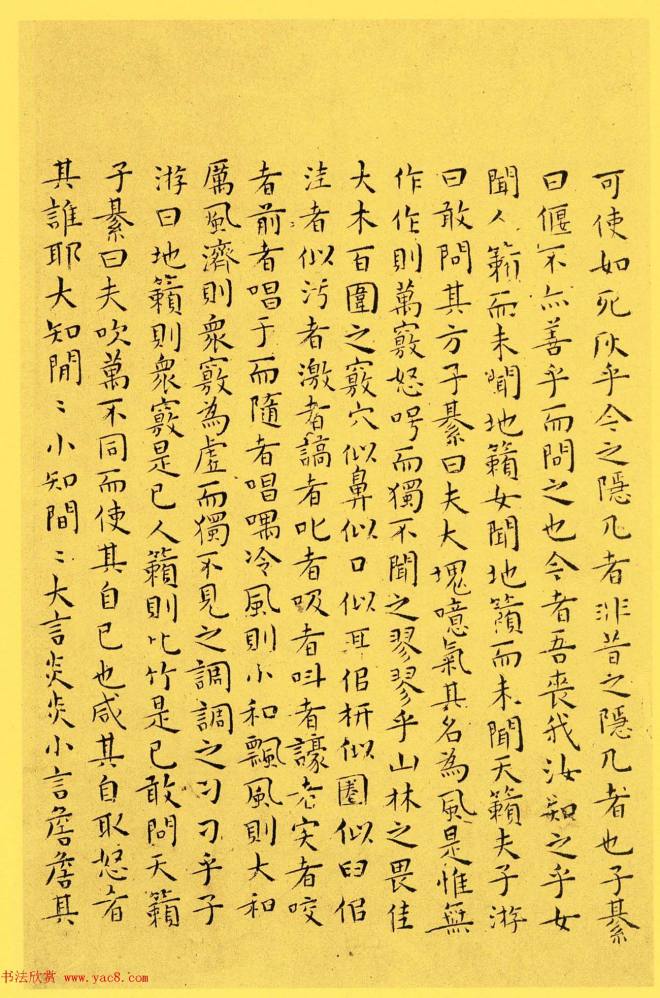 可使如死灰乎今之隱几者非昔之隱几者也子綦
曰偃不亦善乎而問之也今者吾喪我汝知之乎女
聞人籟而未聞地籟女聞地籟而未聞天籟夫子游
曰敢問其方子綦曰夫大塊噫氣其名為風是惟無
作作則萬竅怒呺而獨不聞之翏翏乎山林之畏佳
大木百圍之竅穴似鼻似口似耳佀枅似圈似臼佀
洼者似污者激者謞者叱者吸者叫者譹者宎者咬
者前者唱于而隨者唱喁冷風則小和飄風則大和
厲風濟則眾竅為虛而獨不見之調調之刁刁乎子
游曰地籟則眾竅是已人籟則比竹是已敢問天籟
子綦曰夫吹萬不同而使其自已也咸其自取怒者
其誰耶大知閒〻小知間〻大言炎炎小言詹詹其
书法欣赏 www.yac8.com